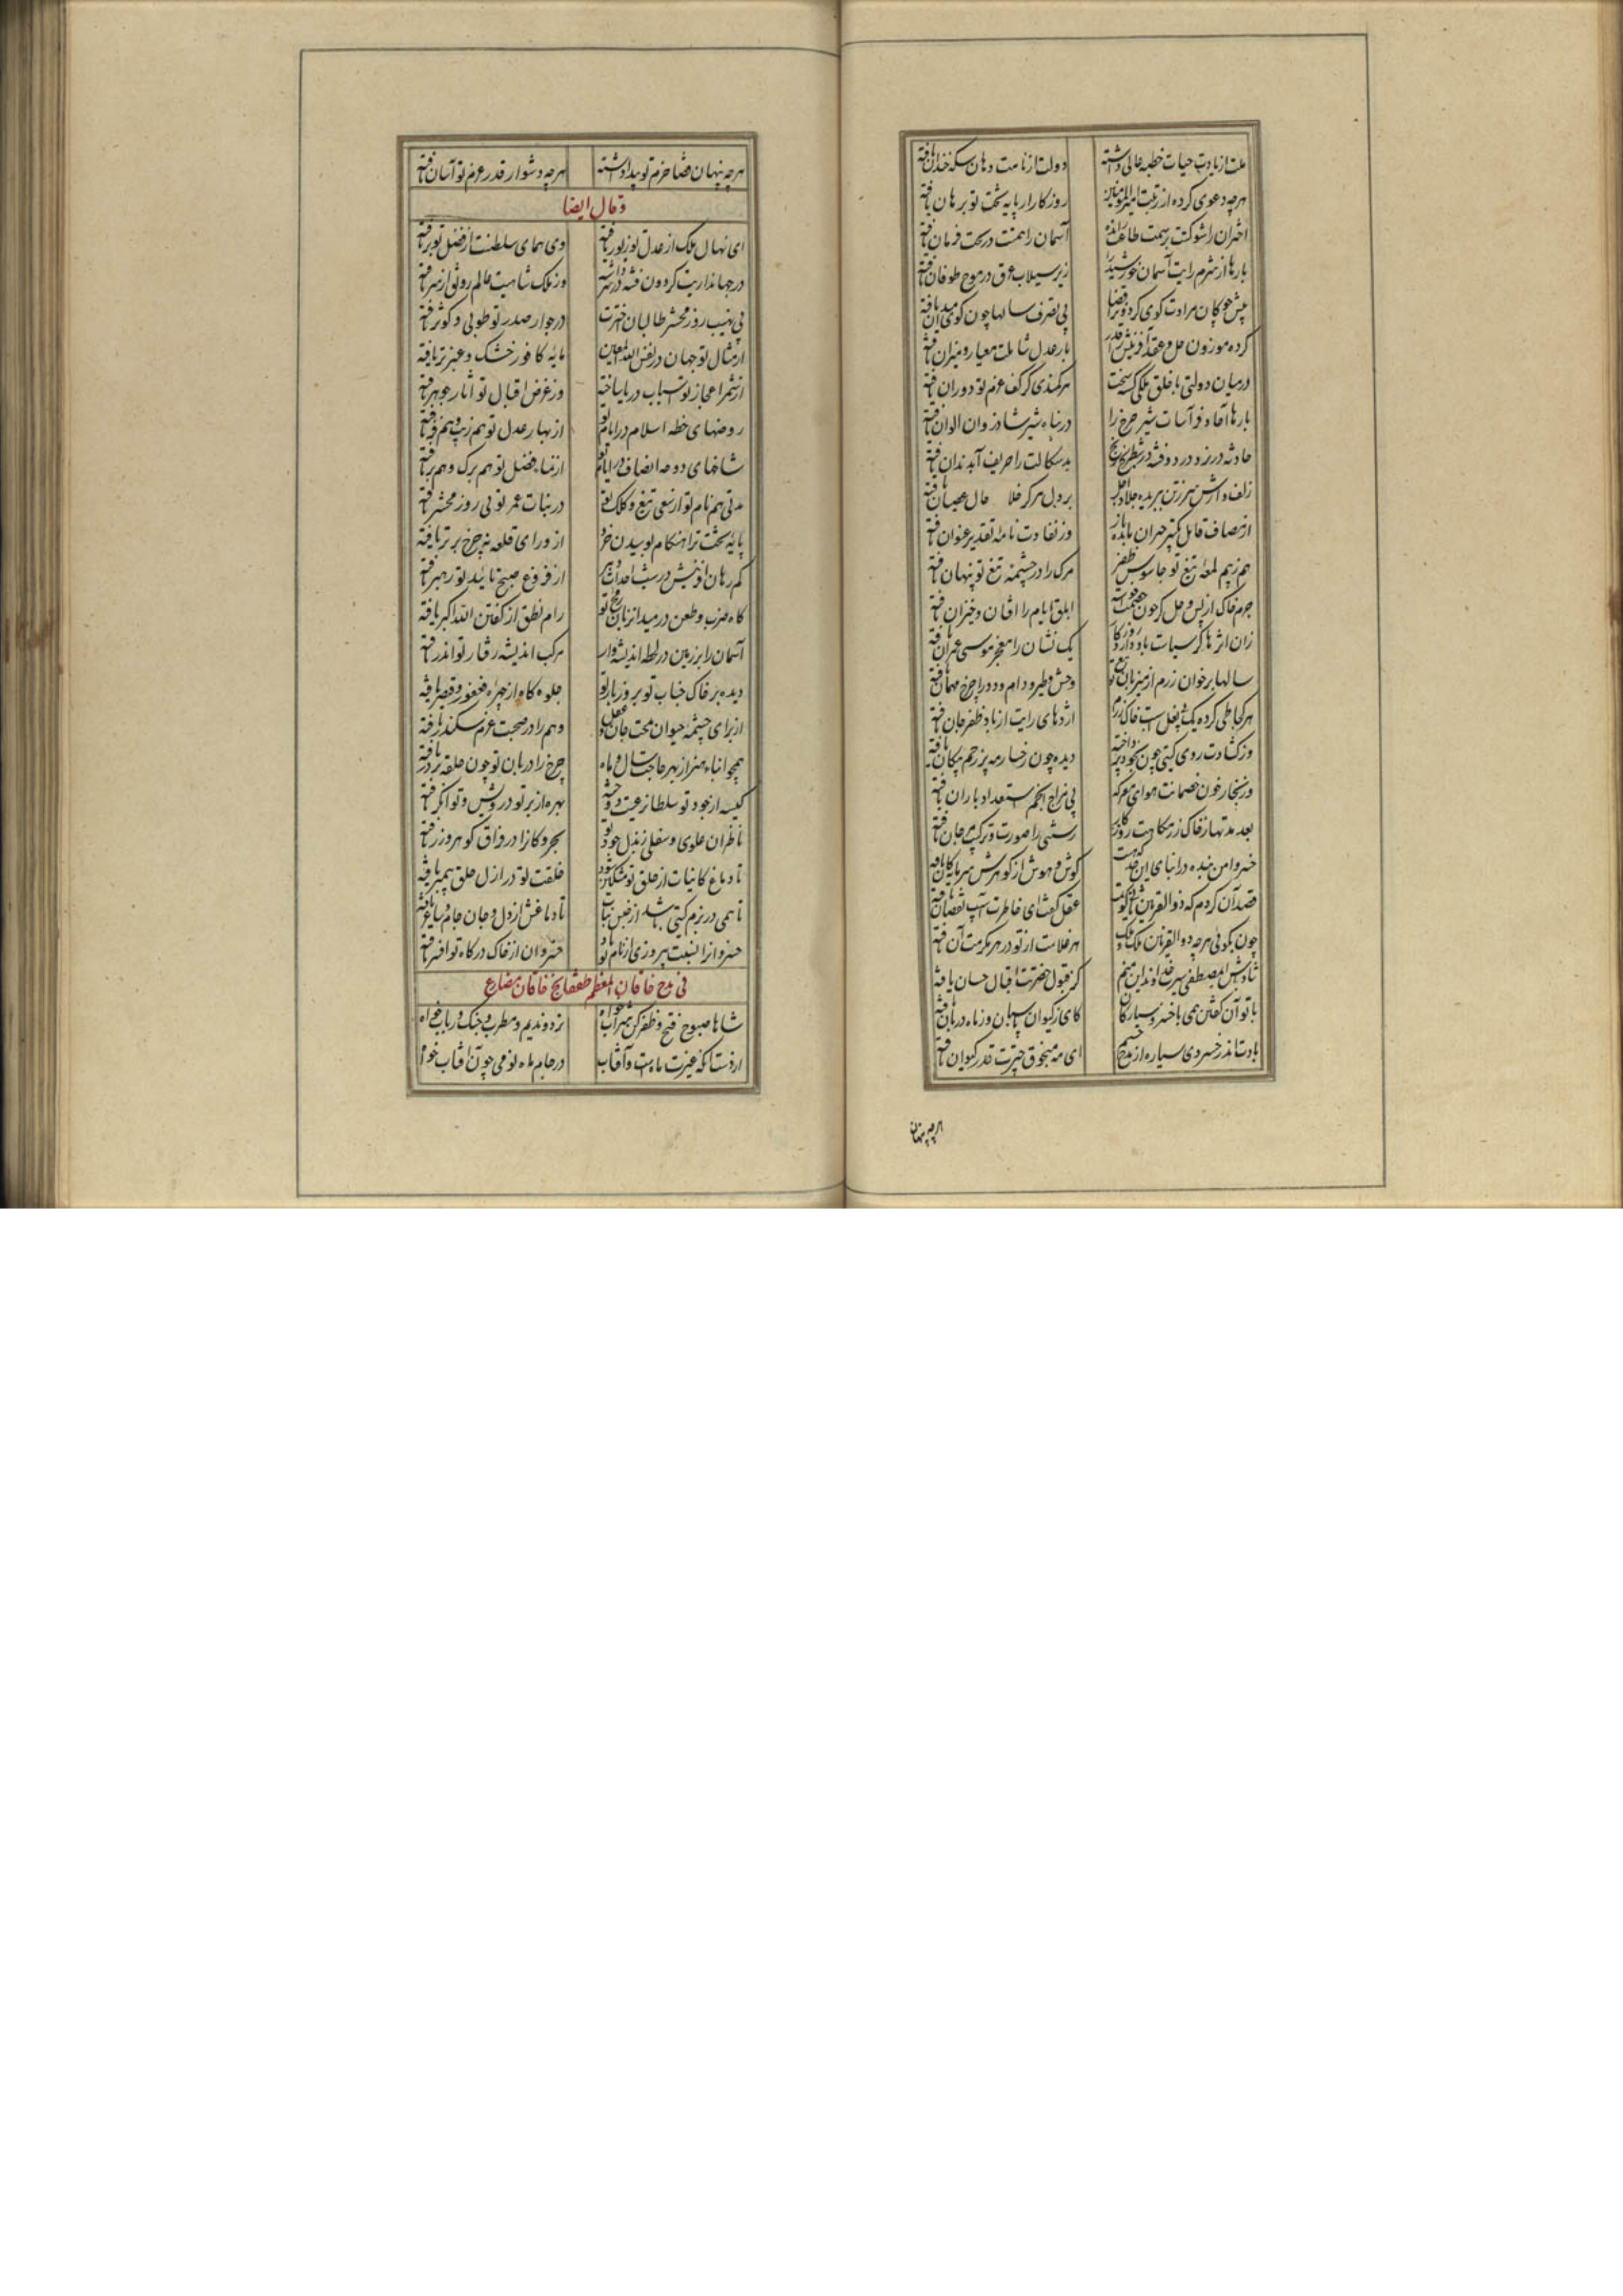 ملت از یادت حیات خطبه عالی داشته دولت از نامت دهان سکه خندان یافته
هرچه دعوی کرده از رتبت امیرالمومنین روزکار از پایه تخت تو برهان یافته
اختران را شوکتت بر سمت طاعت رانده آسمان را همتت در تحت فرمان یافته
بارها از شرم رایت آسمان خورشید را زیر سیلاب عرق در موج طوفان یافته
پیش چوکان مرادت کوی کردون را قضا بی تصرف سالها چون کوی میدان یافته
کرده موزون حل و عقد آفرینش را قدر بار عدل شاملت معیار و میزان یافته
در میان دولتی با خلق ملکی کسیخت هر کمندی کز کف عزم تو دوران یافته
بارها آحاد فراشانت شیر چرخ را در پناه شیر شادروان ایوان یافته
حادثه در نرد درد و فتنه در شطرنج رنج بدسکالت را حریف آب دندان یافته
بر دل مرکز خلا حال عصیان یافته
از مصاف قاتل حیران بمانده وز نفاذت نامه تقدیر عنوان یافته
هم ز بیم لمعه تیغ تو جاسوس ظفر مرک را در چشمه تیغ تو پنهان یافته
جرم خاک از بس و حل کز خون خصمت ابلق ایام را افتان و خیزان یافته
زان اثرها کز سیاست یاد دارد روزکار یک نشان را معجز موسی عمران یافته
سالها بر خوان رزم از میزبان تیغ تو وحش و طیر و دام و دد را چرخ مهمان یافته
هر کجا طی کرده یک پی نعل اسبت خاک رزم اژدهای رایت از باد ظفر جان یافته
دیده چون رخسار مه پر زخم پیکان یافته
وز بخار خون خصمانت هوای معرکه بی مزاج انجم استعداد باران یافته
بعد مدتها ز خاک رزمکاهت روزکار رستنی را صورت و ترکیب مرجان یافته
خسروا من بنده در اثنای این خدمت که هست کوش و هوش از کوهرش سرمایه کان یافته
قصد آن کردم که ذوالقرنین ثانی کویمت عقل کفت ای خاطرت آسیب نقصان یافته
چون بکوئی هرچه ذوالقرنین ملک و ملک هر غلامت از تو در هر مکرمت آن یافته
شاد باش ای مصطفی سیرت خداوند این منم کز قبول حضرتت اقبال حسان یافته
با تو آن کفتن همی با خسرو سیارکان کای ز کیوان پاسبان وز ماه دربان یافته
بادت اندر خسروی سیاره از خیل حشم ای مه منجوق چترت قدر کیوان یافته
هرچه پنهان
هرچه پنهان قضا حزم تو پیدا داشته هرچه دشوار قدر عزم تو آسان یافته
و قال ایضا
ای نهال ملک از عدل تو زیور یافته وی همای سلطنت از فضل تو پر یافته
در جهانداریت کردون فتنه در سر داشته وز ملک شاهیت عالم رونق از سر یافته
بی نهیب روز محشر طالبان حضرتت در جوار صدر تو طوبی و کوثر یافته
از مثال تو جهان درلفض الله المعین مایه کافور خشک و عنبر تر یافته
وز عرض اقبال تو آثار جوهر یافته
روضهای خطه اسلام در ایام تو از بهار عدل تو هم زیب و هم فر یافته
شاخهای دوحه انصاف در ایام تو از نماء فضل تو هم برک و هم بر یافته
مدتی هم نام تو از سعی تیغ و کلک تو در ثبات عمر تو بی روز محشر یافته
پایه تخت ترا هنکام بوسیدن خرد از ورای قلعه نه چرخ برتر یافته
کم رهان آفرینش در شب احداث دهر از فروغ صبح تائید تو رهبر یافته
کاه ضرب و طعن در میدان زبان رمح تو رام نطق از کفتن الله اکبر یافته
آسمان را بر زمین در لحظه اندیشه وار مرکب اندیشه رفتار تو اندر یافته
دیده بر خاک جناب تو بروز بار تو جلوه کاه از چهره فغفور و قیصر یافته
از برای چشمه حیوان محب جان عقل وهم را در صحبت عزم سکندر یافته
همچو ابناء هنر از بهر حاجت سال و ماه چرخ را دربان تو چون حلقه بر در یافته
کیسه از جود تو سلطان رعیت دوخته بهره از بر تو درویش و توانکر یافته
ناظران علوی و سفلی ز بذل جود تو بحر و کان را در وثاق کوهر و زر یافته
تا دماغ کاینات از خلق تو مشکین شود خلقت تو در ازل خلق پیمبر یافته
تا همی در بزم کیتی باشد از جنس نبات تا دماغش از دل و جان جام و ساغر یافته
خسروان را نسبت پیروزی از نام تو باد خسروان از خاک درکاه تو افسر یافته
فی مدح خاقان المعظم طمغاج خاقان مضارع
شاها صبوح فتح و ظفر کن شراب خواه نرد و ندیم و مطرب و چنک و رباب خواه
از دست آنکه غیرت ماهست و آفتاب در جام ماه نو می چون آفتاب خواه